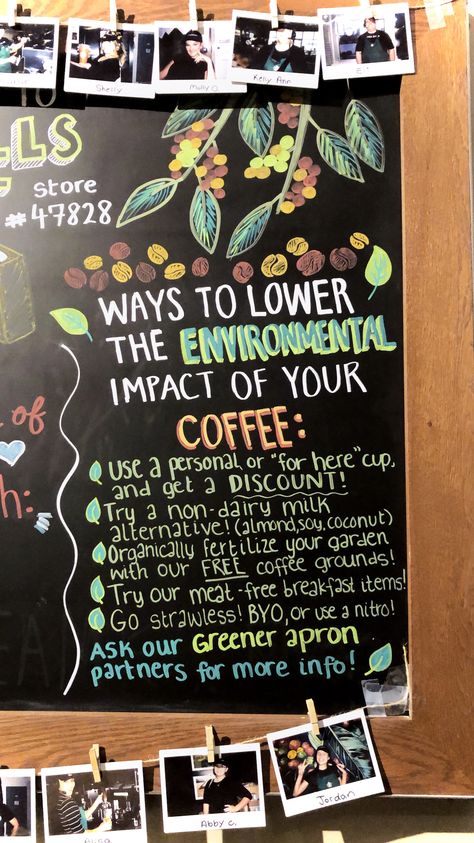 Shelly
Molly O.
Kelly Ann
LLS
Store
#47828
WAYS TO LOWER
THE ENVIRONMENTAL
IMPACT OF YOUR
COFFEE:
Use a personal or "for here" cup,
and get a DISCOUNT!
Try a non-dairy milk
alternative! (almond, soy, coconut)
Organically fertilize your garden
with our FREE coffee grounds!
Try our meat-free breakfast items!
Go strawless! BYO, or use a nitro!
ASK our Greener apron
partners for more info!
of
h:
Abby C.
Jordan